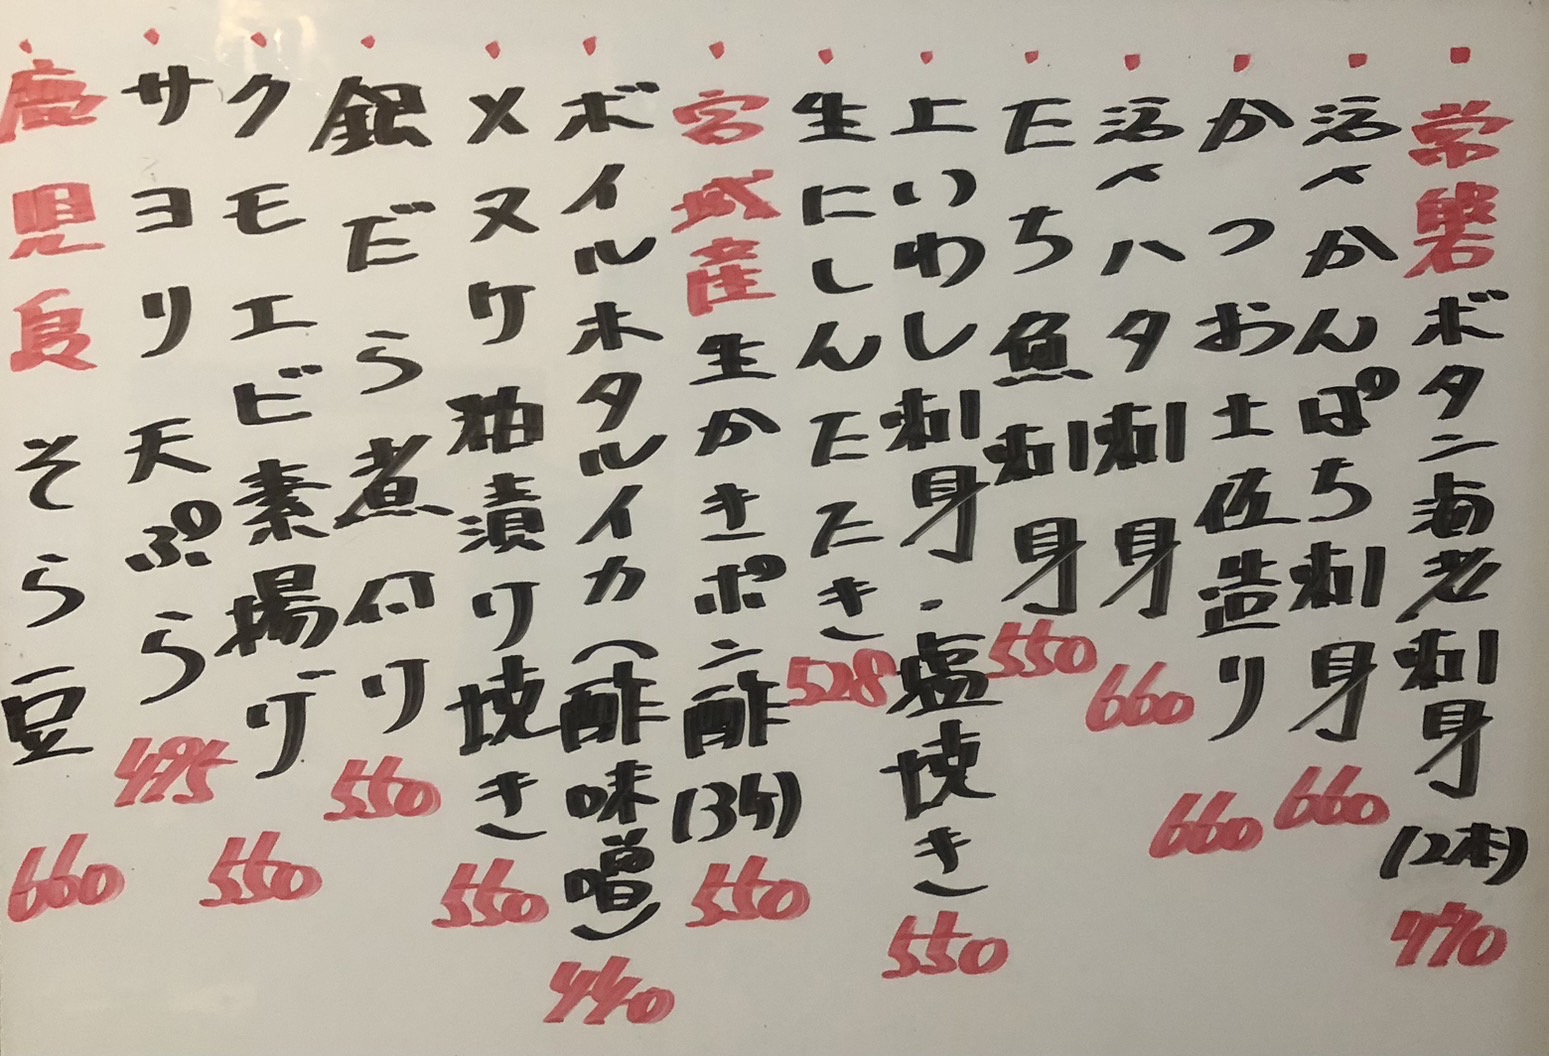 常磐ボタン海老刺身(2本) 770
活〆かんぱち刺身 660
かつお土佐造り 660
活〆ハタ刺身 660
たち魚刺身 550
上いわし刺身・塩焼き 550
生にしんたたき 528
宮城産生かきポン酢(3ケ) 550
ボイルホタルイカ(酢味噌) 440
メヌケ粕漬け焼き 550
銀だら煮付け 550
クモエビ素揚げ 550
サヨリ天ぷら 495
鹿児島そら豆 660